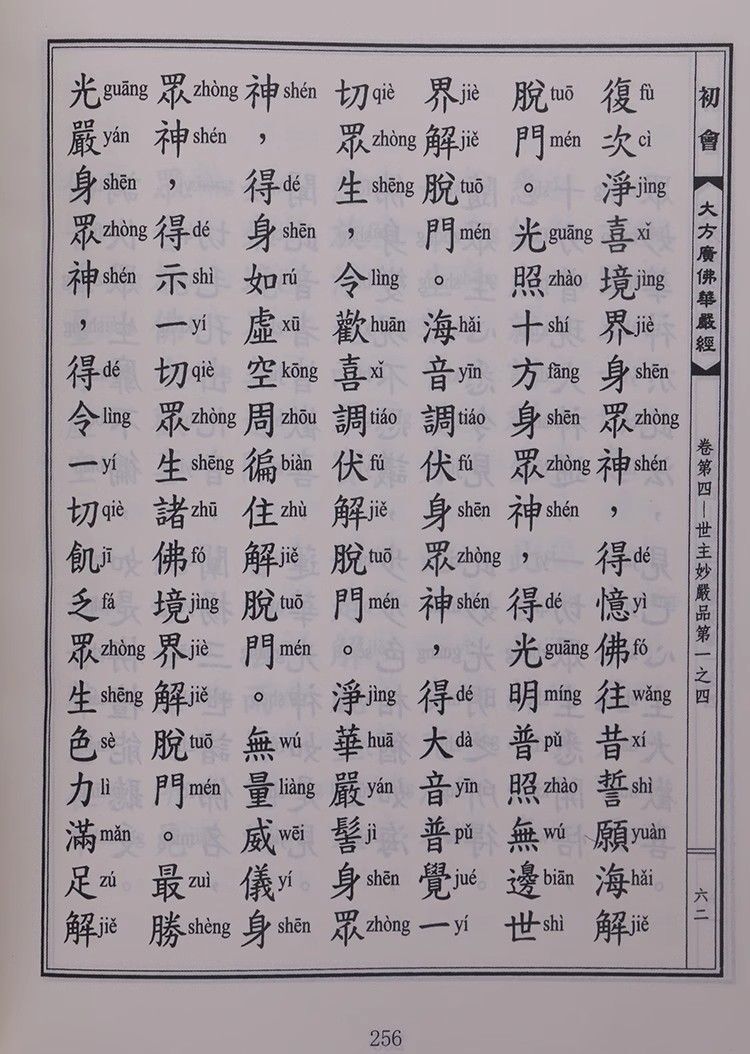 初會
大方廣佛華嚴經
卷第四—世主妙嚴品第一之四
六二
復fù 次cì 淨jìng 喜xǐ 境jìng 界jiè 身shēn 眾zhòng 神shén ， 得dé 憶yì 佛fó 往wǎng 昔xí 誓shì 願yuàn 海hǎi 解jiě
脫tuō 門mén 。 光guāng 照zhào 十shí 方fāng 身shēn 眾zhòng 神shén ， 得dé 光guāng 明míng 普pǔ 照zhào 無wú 邊biān 世shì
界jiè 解jiě 脫tuō 門mén 。 海hǎi 音yīn 調tiáo 伏fú 身shēn 眾zhòng 神shén ， 得dé 大dà 音yīn 普pǔ 覺jué 一yí
切qiè 眾zhòng 生shēng ， 令lìng 歡huān 喜xǐ 調tiáo 伏fú 解jiě 脫tuō 門mén 。 淨jìng 華huā 嚴yán 髻jì 身shēn 眾zhòng
神shén ， 得dé 身shēn 如rú 虛xū 空kōng 周zhōu 徧biàn 住zhù 解jiě 脫tuō 門mén 。 無wú 量liàng 威wēi 儀yí 身shēn
眾zhòng 神shén ， 得dé 示shì 一yí 切qiè 眾zhòng 生shēng 諸zhū 佛fó 境jìng 界jiè 解jiě 脫tuō 門mén 。 最zuì 勝shèng
光guāng 嚴yán 身shēn 眾zhòng 神shén ， 得dé 令lìng 一yí 切qiè 飢jī 乏fá 眾zhòng 生shēng 色sè 力lì 滿mǎn 足zú 解jiě
256